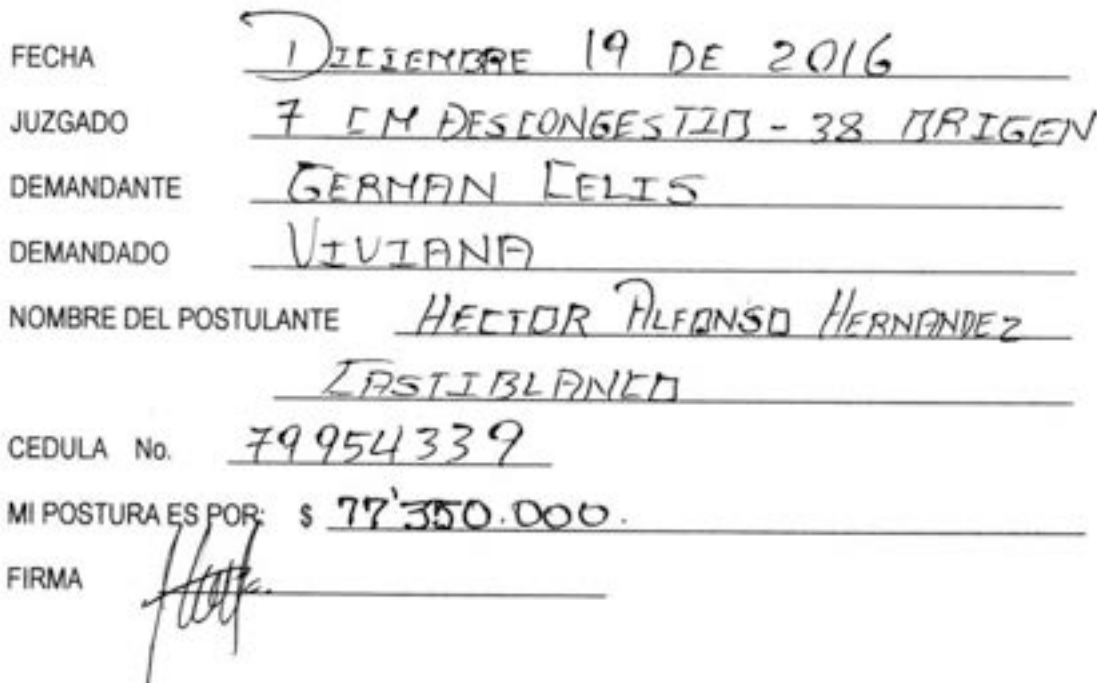 FECHA DICIEMBRE 19 DE 2016
JUZGADO 7 CM DESCONGESTIO - 38 ORIGEN
DEMANDANTE GERMAN CELIS
DEMANDADO VIVIANA
NOMBRE DEL POSTULANTE HECTOR ALFONSO HERNANDEZ
CASTIBLANCO
CEDULA No. 79954339
MI POSTURA ES POR: $ 77'350.000.
FIRMA